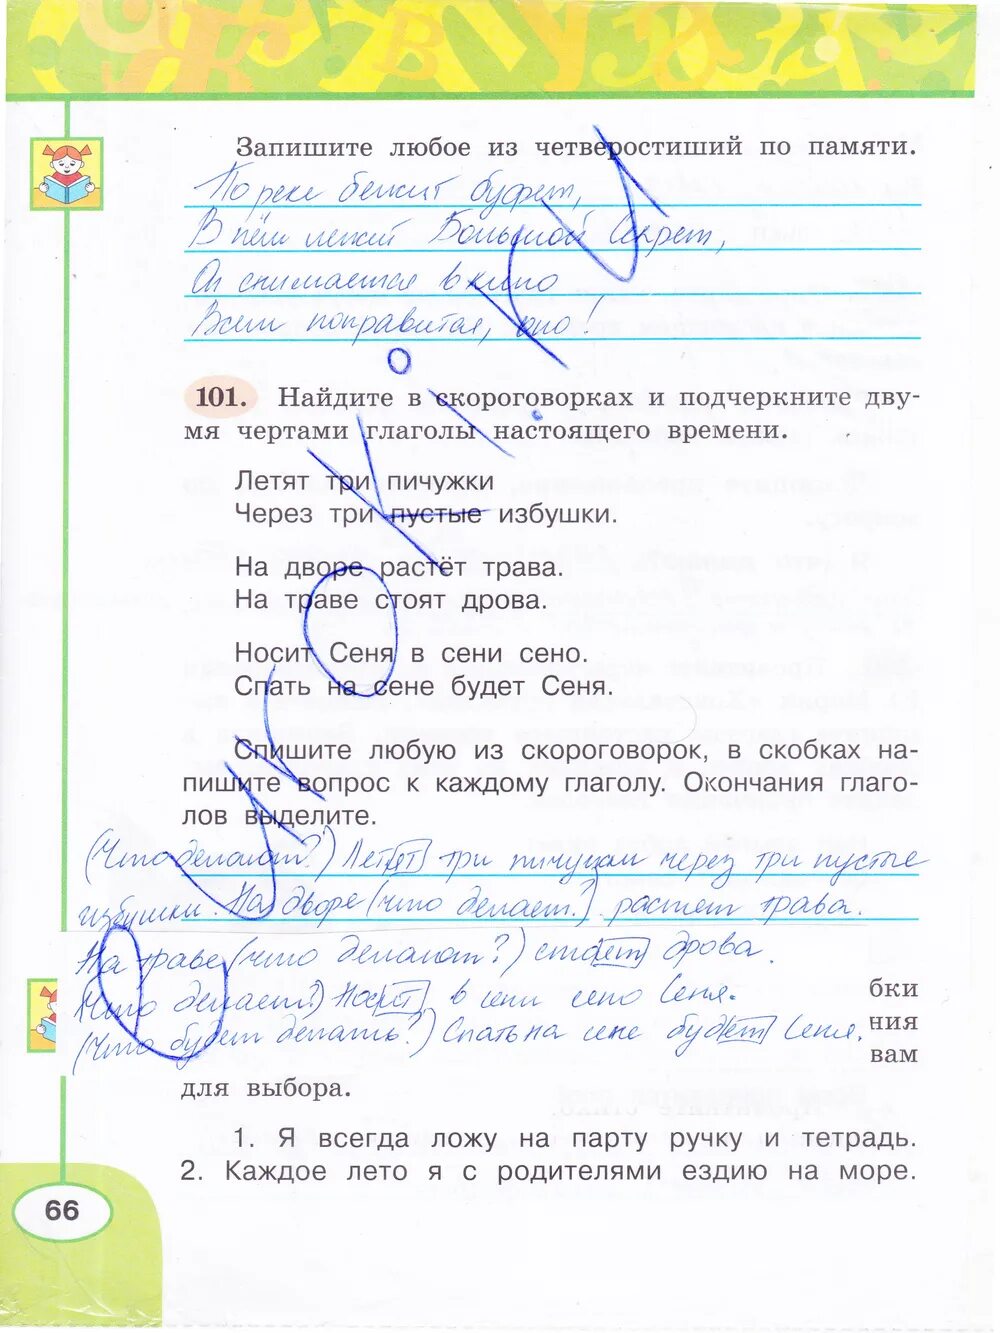 Запишите любое из четверостиший по памяти.
По реке бежит буфет,
В нём лежит Большой Секрет,
Он снимается в кино
Всем понравится, оно!
101. Найдите в скороговорках и подчеркните дву-
мя чертами глаголы настоящего времени.
Летят три пичужки
Через три пустые избушки.
На дворе растёт трава.
На траве стоят дрова.
Носит Сеня в сени сено.
Спать на сене будет Сеня.
Спишите любую из скороговорок, в скобках на-
пишите вопрос к каждому глаголу. Окончания глаго-
лов выделите.
(Что делают?) Летят три пичужки через три пустые
избушки. На дворе (что делает?) растет трава.
На траве (что делают?) стоят дрова.
(Что делает?) Носит в сени сено Сеня.
бки
(Что будет делать?) Спать на сене будет Сеня.
ния
вам
для выбора.
1. Я всегда ложу на парту ручку и тетрадь.
2. Каждое лето я с родителями ездию на море.
66